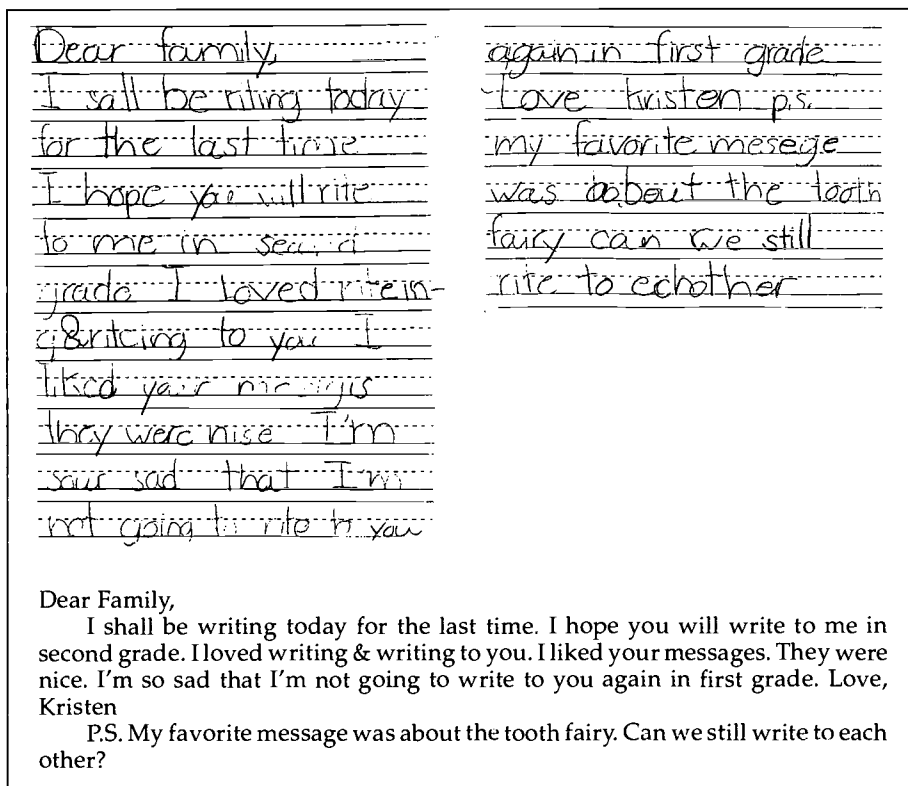 Dear family,
I sall be riting today
for the last time
I hope you will rite
to me in
grade I loved ritein-
g & ritcing to you I
liked your
they were nise I'm
sad that I'm
not going to rite to you
again in first grade
Love kristen p.s.
my favorite mesege
was aobout the tooth
fairy can we still
rite to echother
Dear Family,
I shall be writing today for the last time. I hope you will write to me in
second grade. I loved writing & writing to you. I liked your messages. They were
nice. I'm so sad that I'm not going to write to you again in first grade. Love,
Kristen
P.S. My favorite message was about the tooth fairy. Can we still write to each
other?